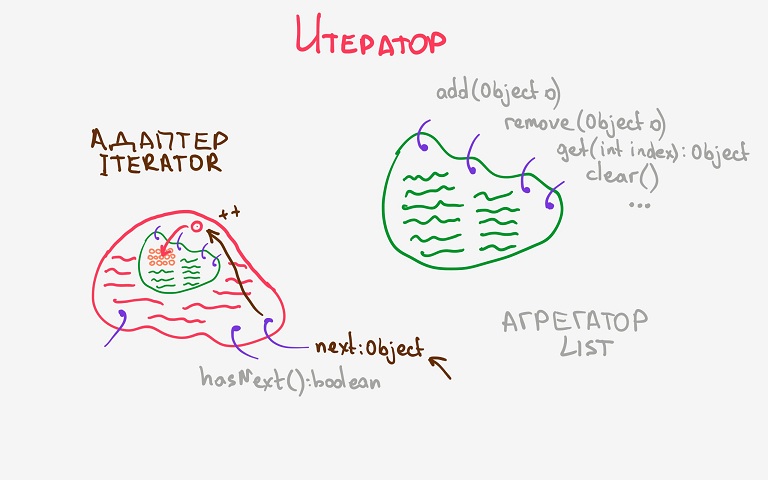 Итератор
add(Object o)
remove(Object o)
get(int index): Object
clear()
...
АДАПТЕР
ITERATOR
++
next:Object
hasNext():boolean
АГРЕГАТОР
LIST